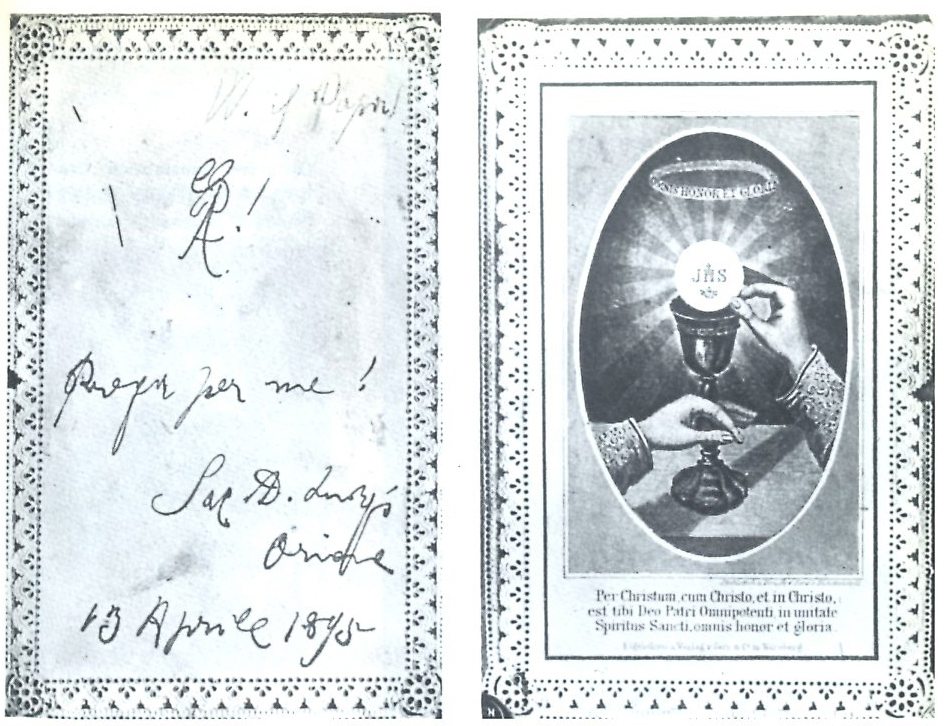 W. il Papa!
A!
Prega per me!
Sac. D. Luigi
Orione
13 Aprile 1895
OMNIS HONOR ET GLORIA
JHS
Per Christum, cum Christo, et in Christo,
est tibi Deo Patri Omnipotenti, in unitate
Spiritus Sancti, omnis honor et gloria.
N